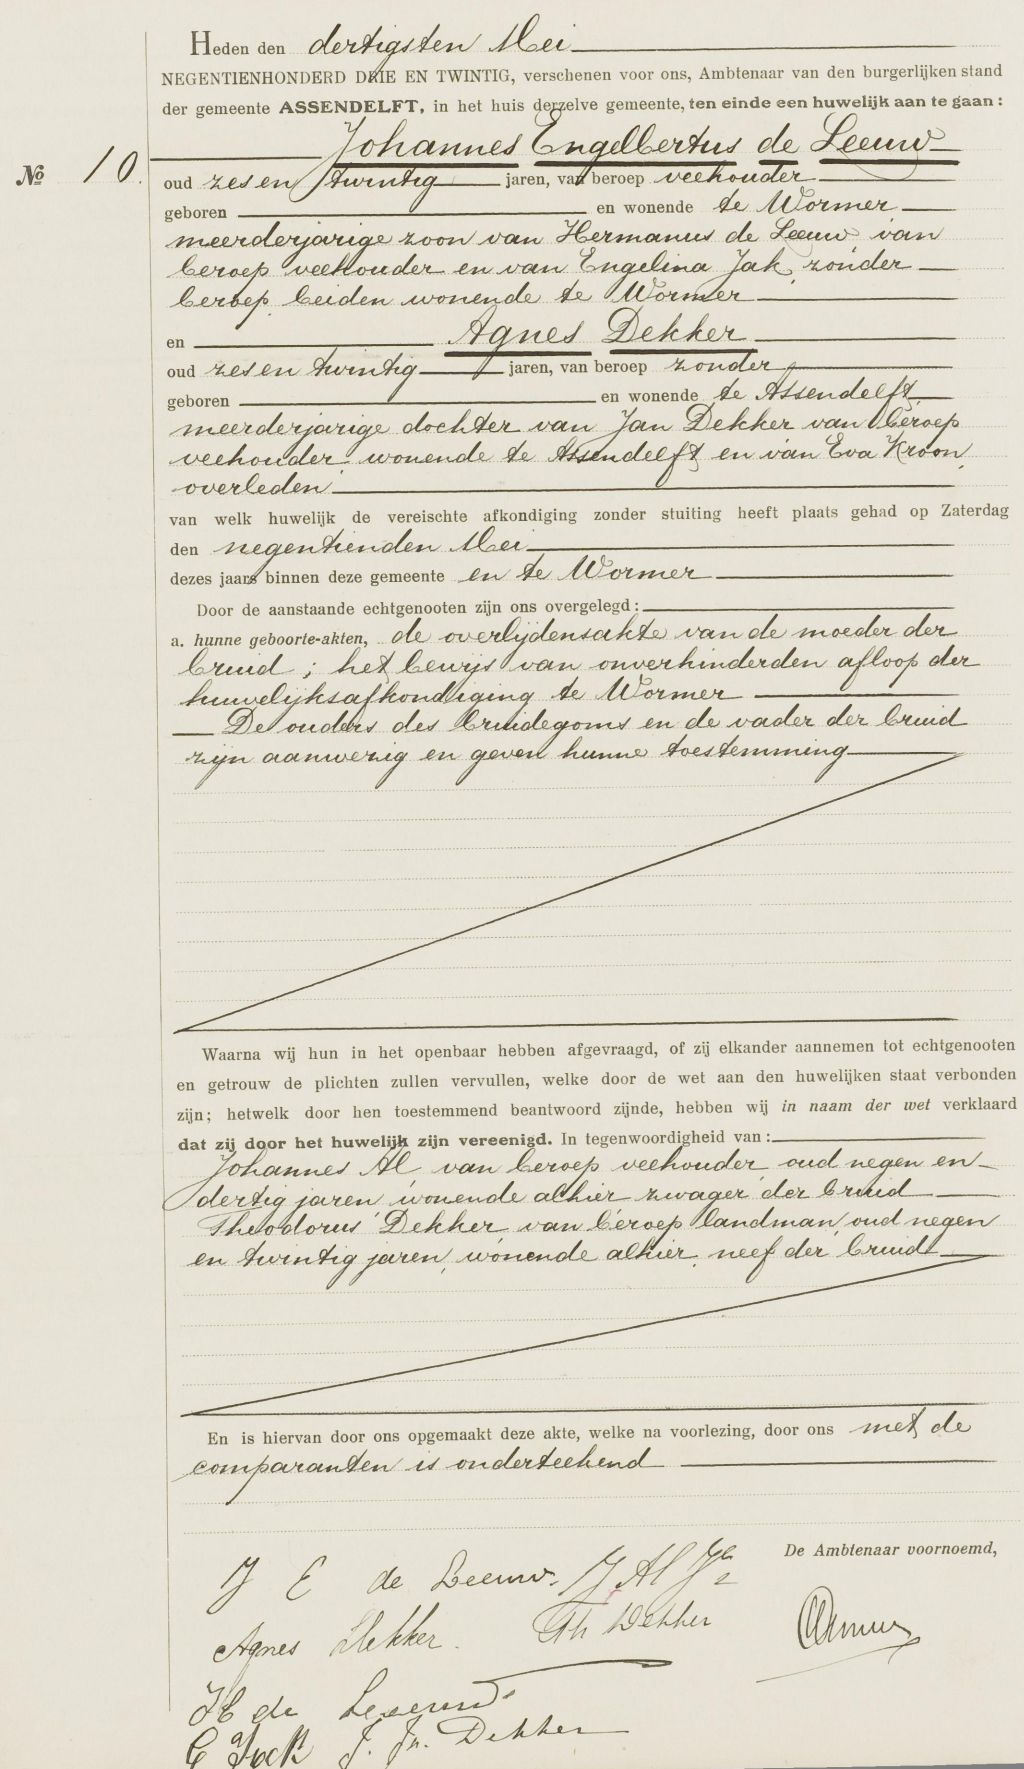 Heden den dertigsten Mei
NEGENTIENHONDERD DRIE EN TWINTIG, verschenen voor ons, Ambtenaar van den burgerlijken stand
der gemeente ASSENDELFT, in het huis derzelve gemeente, ten einde een huwelijk aan te gaan:
Johannes Engelbertus de Leeuw
No 10.
oud zes en twintig jaren, van beroep veehouder
geboren en wonende te Wormer
meerderjarige zoon van Hermanus de Leeuw, van
beroep veehouder en van Engelina Jak, zonder
beroep, beiden wonende te Wormer
en Agnes Dekker
oud zes en twintig jaren, van beroep zonder
geboren en wonende te Assendelft,
meerderjarige dochter van Jan Dekker van beroep
veehouder, wonende te Assendelft en van Eva Kroon,
overleden
van welk huwelijk de vereischte afkondiging zonder stuiting heeft plaats gehad op Zaterdag
den negentienden Mei
dezes jaars binnen deze gemeente en te Wormer
Door de aanstaande echtgenooten zijn ons overgelegd:
a. hunne geboorte-akten, de overlijdensakte van de moeder der
bruid; het bewijs van onverhinderden afloop der
huwelijksafkondiging te Wormer
De ouders des bruidegoms en de vader der bruid
zijn aanwezig en geven hunne toestemming
Waarna wij hun in het openbaar hebben afgevraagd, of zij elkander aannemen tot echtgenooten
en getrouw de plichten zullen vervullen, welke door de wet aan den huwelijken staat verbonden
zijn; hetwelk door hen toestemmend beantwoord zijnde, hebben wij in naam der wet verklaard
dat zij door het huwelijk zijn vereenigd. In tegenwoordigheid van:
Johannes Al van beroep veehouder oud negen en
dertig jaren, wonende alhier zwager der bruid
Theodorus Dekker van beroep landman, oud negen
en twintig jaren, wonende alhier, neef der bruid
En is hiervan door ons opgemaakt deze akte, welke na voorlezing, door ons met de
comparanten is onderteekend
De Ambtenaar voornoemd,
J E de Leeuw. J. Al Jz
Agnes Dekker. Th Dekker
H de Leeuw
E Jak J. Jn. Dekker